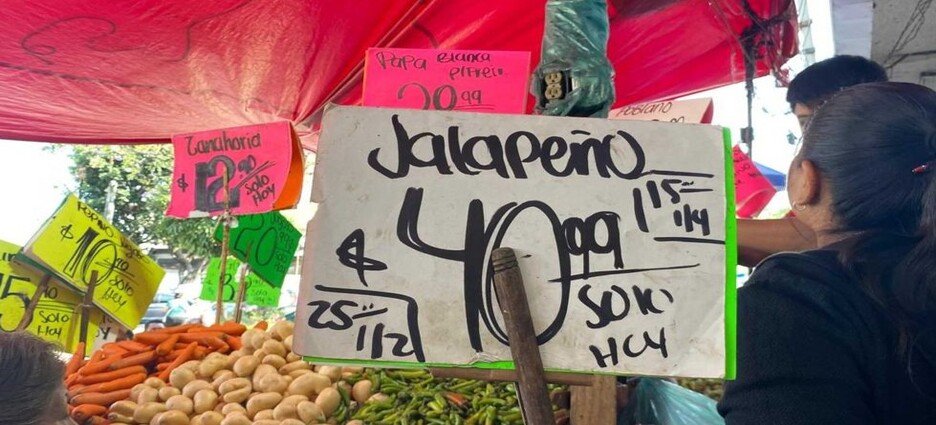 Papa Blanca
P/Freir
20.99
Poblano
Zanahoria
$ 12.90
Solo
Hoy
$ 10
Solo
Hoy
20
5
Solo
Hoy
Jalapeño
$ 40.99
15
1/4
25
1/2
Solo
Hoy